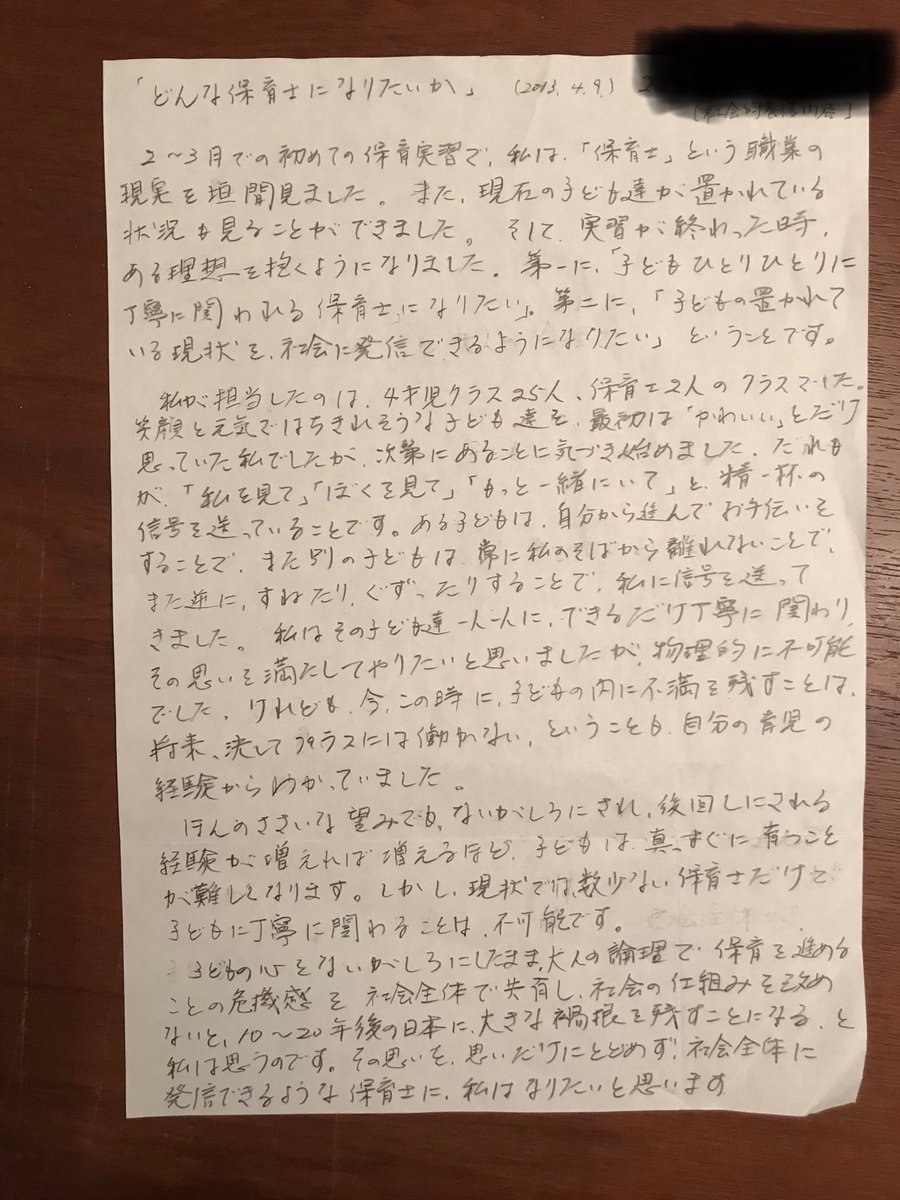 「どんな保育士になりたいか」 (2013. 4. 9.) 2
[社会的養護内容]
2～3月での初めての保育実習で、私は、「保育士」という職業の
現実を垣間見ました。また、現在の子ども達が置かれている
状況も見ることができました。そして、実習が終わった時、
ある理想を抱くようになりました。第一に、「子どもひとりひとりに
丁寧に関われる保育士になりたい」。第二に、「子どもの置かれて
いる現状を、社会に発信できるようになりたい」ということです。
私が担当したのは、4才児クラス25人、保育士2人のクラスでした。
笑顔と元気ではちきれそうな子ども達を、最初は「かわいい」とだけ
思っていた私でしたが、次第にあることに気づき始めました。だれも
が、「私を見て」「ぼくを見て」「もっと一緒にいて」と、精一杯の
信号を送っていることです。ある子どもは、自分から進んでお手伝いを
することで、また別の子どもは、常に私のそばから離れないことで、
また逆に、すねたり、ぐずったりすることで、私に信号を送って
きました。私はその子ども達一人一人に、できるだけ丁寧に関わり、
その思いを満たしてやりたいと思いましたが、物理的に不可能
でした。けれども、今、この時に、子どもの内に不満を残すことは、
将来、決してプラスには働かない、ということも、自分の育児の
経験からわかっていました。
ほんのささいな望みでも、ないがしろにされ、後回しにされる
経験が増えれば増えるほど、子どもは、真っすぐに育つこと
が難しくなります。しかし、現状では、数少ない保育士だけで
子どもに丁寧に関わることは、不可能です。
子どもの心をないがしろにしたまま、大人の論理で保育を進める
ことの危機感を社会全体で共有し、社会の仕組みを改め
ないと、10～20年後の日本に、大きな禍根を残すことになる、と
私は思うのです。その思いを、思いだけにとどめず、社会全体に
発信できるような保育士に、私はなりたいと思います